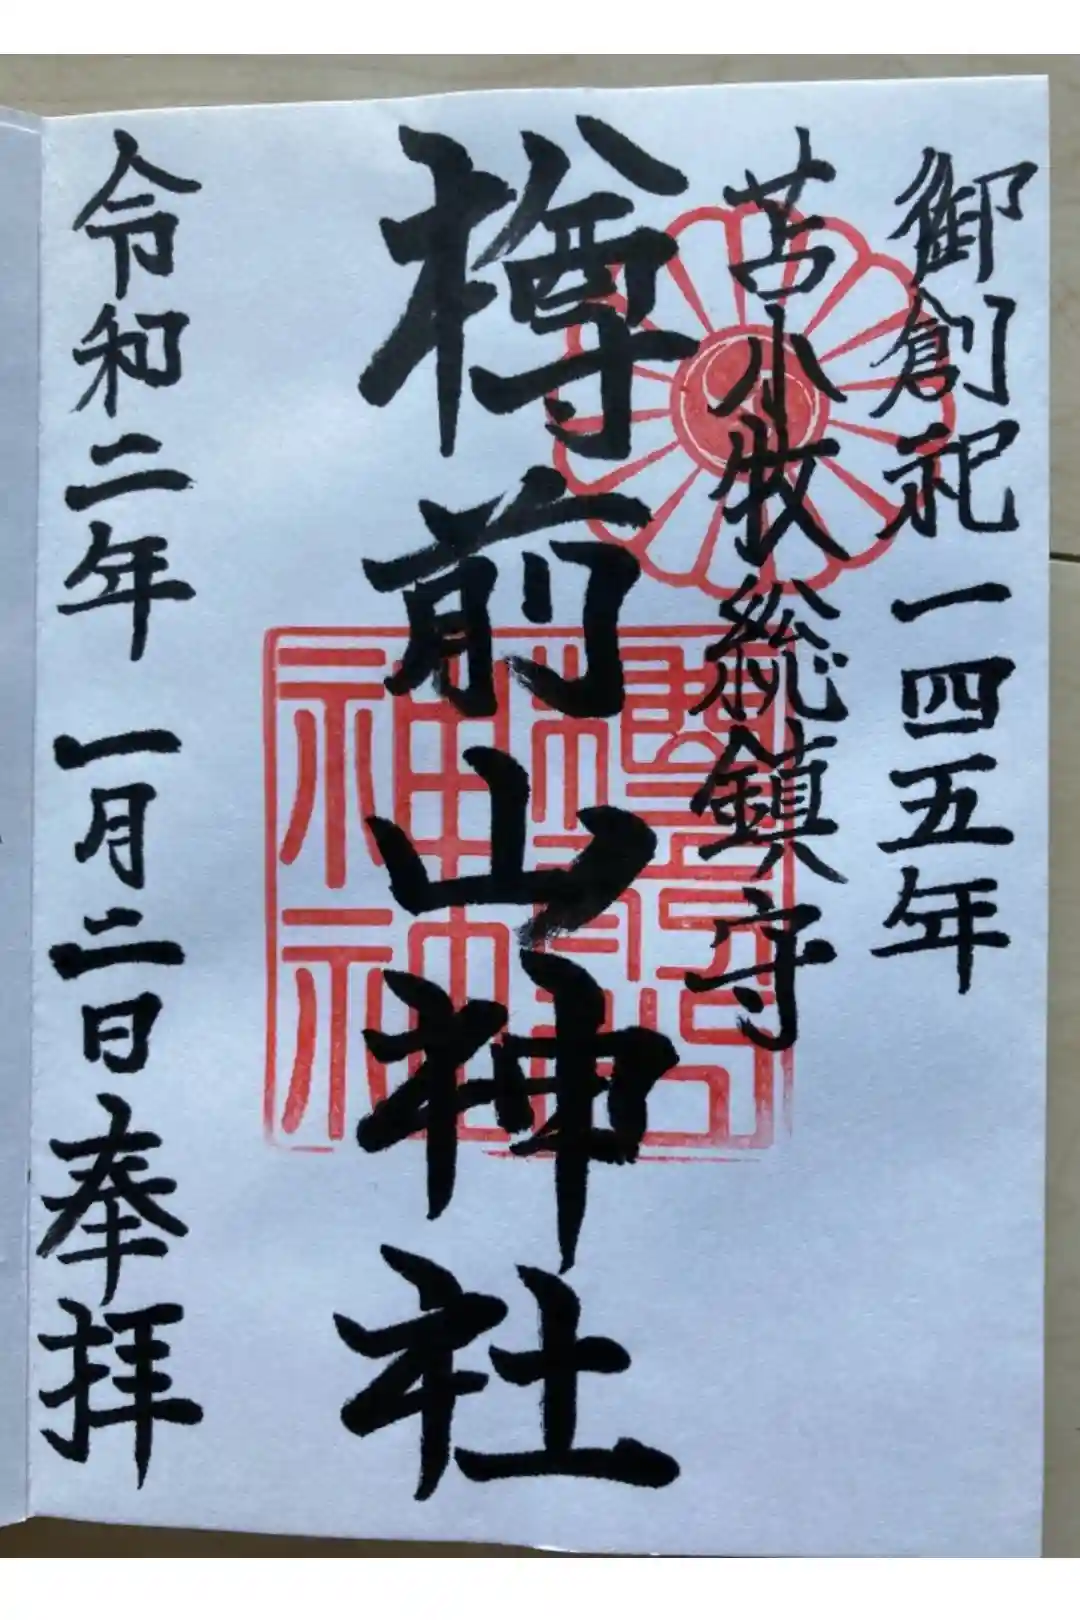 御創祀一四五年
苫小牧総鎮守
樽前山神社
令和二年 一月二日奉拝